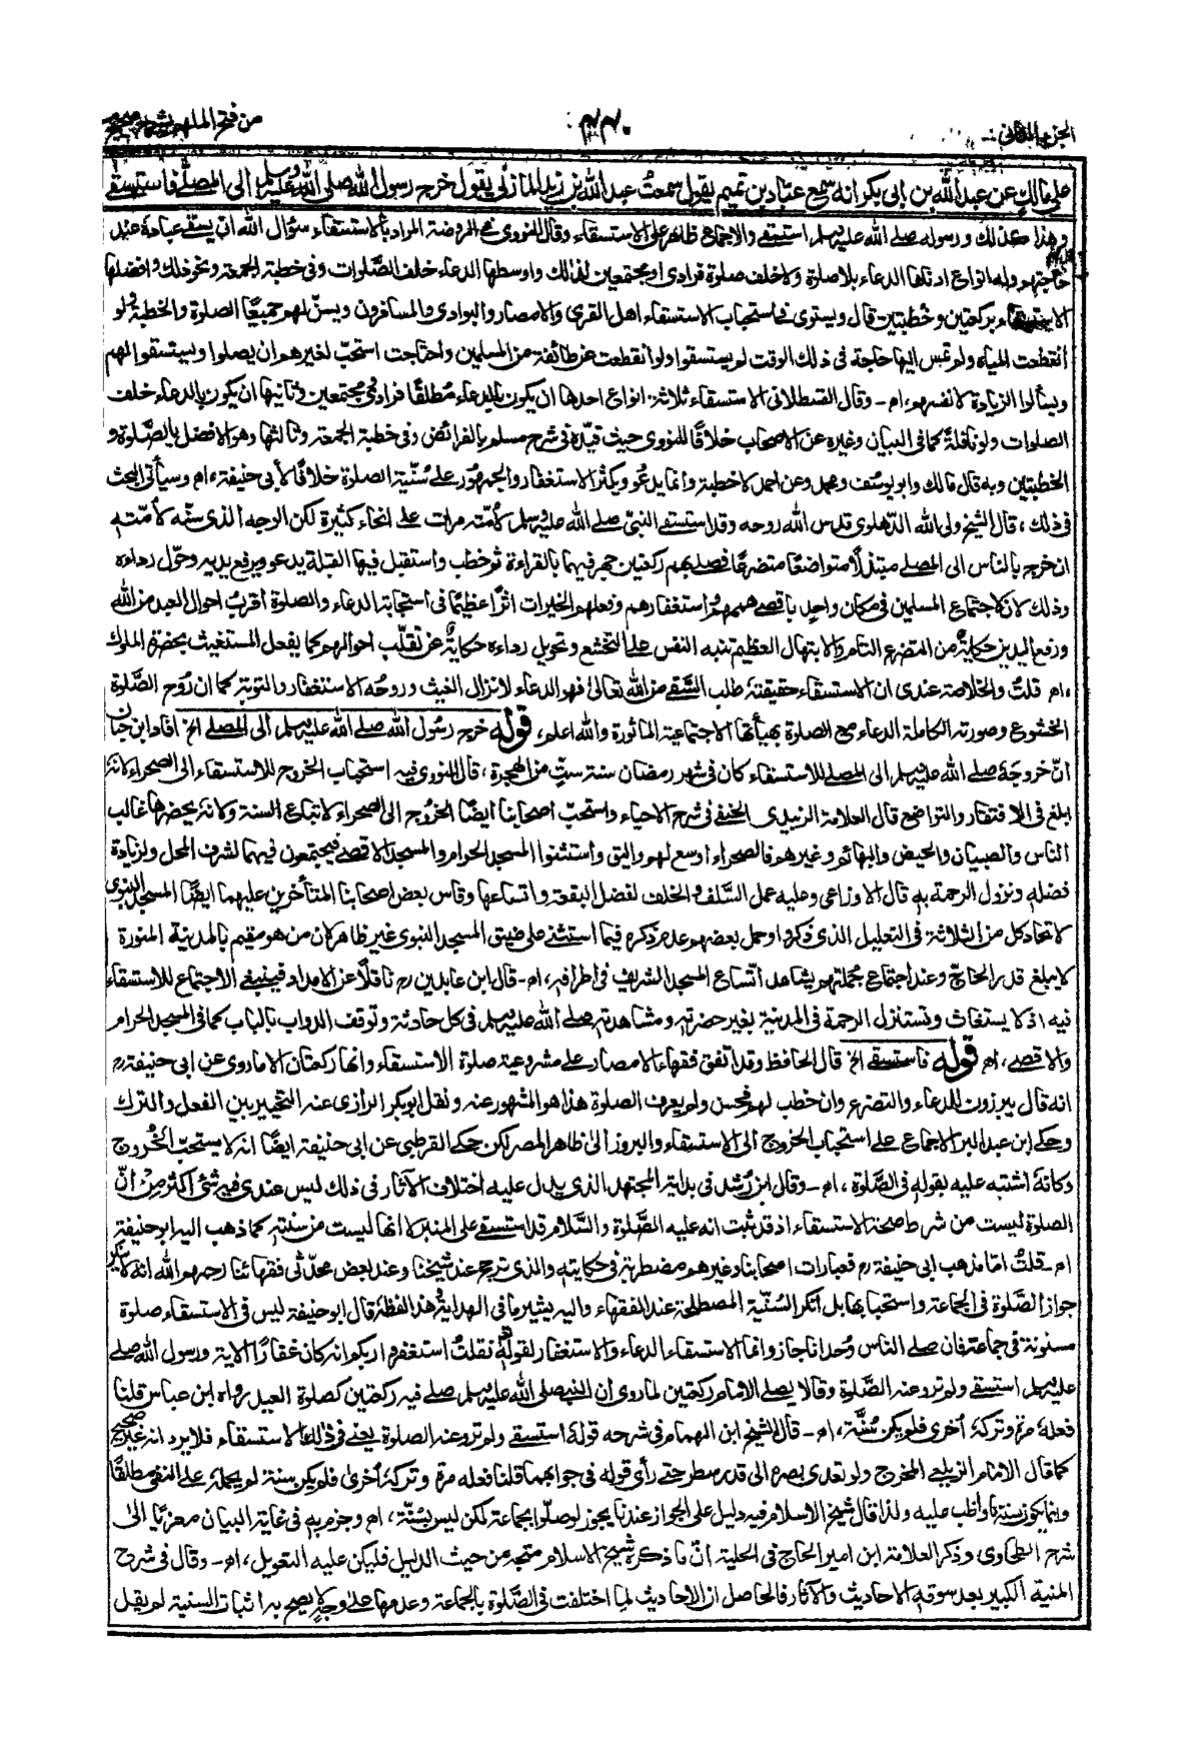 الجزء الثاني ٤٤٠ من فتح الملهم بشرح صحيح
على مالك عن عبد الله بن ابى بكر انه سمع عباد بن تميم يقول سمعتُ عبد الله بن زيد المازنى يقول خرج رسول الله صلى الله عليه وسلم الى المصلى فاستسقى
وهذا كذلك ورسوله صلے الله عليہ وسلم استسقى والاجماع ظاهر على الاستسقاء وقال النووى فى الروضة المراد بالاستسقاء سؤال الله ان يسقى عبادة عند
حاجتهم وله انواع ادناها الدعاء بلا صلوة ولا خلف صلوة فرادى او مجتمعين لذلك واوسطها الدعاء خلف الصَّلوات وفى خطبة الجمعة ونحو ذلك وافضلها
الاستسقاء بركعتين وخطبتين قال ويستوى فى استحباب الاستسقاء اهل القرى والامصار والبوادى والمسافرون ويسنّ لهم جميعًا الصلوة والخطبة ولو
انقطعت المياه ولم تمس اليها حاجة فى ذلك الوقت لم يستسقوا ولو انقطعت عن طائفة من المسلمين واحتاجت استحبّ لغيرهم ان يصلوا ويستسقوا لهم
ويسألوا الزيادة لانفسهم، اھ - وقال القسطلانى الاستسقاء ثلاثة انواع احدها ان يكون بالدعاء مُطلقًا فرادى مجتمعين وثانيها ان يكون بالدعاء خلف
الصلوات ولو نافلةً كما فى البيان وغيره عن الاصحاب خلافًا للنووى حيث قيّده فى شرح مسلم بالفرائض وفى خطبة الجمعة وثالثها وهو الافضل بالصَّلوة و
الخطبتين وبه قال مالك وابو يوسُف ومحمد وعن احمد لا خطبة وانما يدعو ويكثر الاستغفار والجمهُور على سُنّية الصلوة خلافًا لأبى حنيفة، اھ وسيأتى البحث
فى ذلك، قال الشيخ ولى الله الدّهلوى قدس الله روحه وقد استسقى النبىّ صلے الله عليہ وسلم لأمّته مرات على انحاء كثيرة لكن الوجه الذى سنّه لأمّته
ان خرج بالناس الى المصلى مبتذلًا متواضعًا متضرعًا فصلى بهم ركعتين جهر فيهما بالقراءة ثم خطب واستقبل فيها القبلة يدعو ويرفع يديه وحوّل رداءه
وذلك لان لاجتماع المسلمين فى مكان واحد باقصى هممهم واستغفارهم وفعلهم الخيرات اثرًا عظيمًا فى استجابة الدعاء والصلوة اقربُ احوال العبد من الله
ورفع اليدين حكايةٌ من التضرع التام والابتهال العظيم تنبه النفس على التخشع وتحويل رداءه حكايةٌ عن تقلّب احوالهم كما يفعل المستغيث بحضرة الملوك
،اھ قلتُ والخلاصة عندى ان الاستسقاء حقيقتهٗ طلب السَّقى من الله تعالىٰ فهو الدعاء لانزال الغيث وروحُه الاستغفار والتوبة كما ان رُوح الصَّلوة
الخشوع وصورته الكاملة الدعاء مع الصلوة بهيأتها الاجتماعية المأثورة والله اعلم، قوله خرج رسُول الله صلے الله عليہ وسلم الى المصلى الخ افاد ابن حبان
انّ خروجهٗ صلى الله عليہ وسلم الى المصلى للاستسقاء كان فى شهر رمضان سنة ستٍّ من الهجرة، قال النووى فيه استحباب الخروج للاستسقاء الى الصحراء لانهٗ
ابلغ فى الافتقار والتواضع قال العلامة الزبيدى الحنفى فى شرح الاحياء واستحبّ اصحابنا ايضًا الخرُوج الى الصحراء لاتباع السنة ولانهٗ يحضرها غالب
الناس والصبيان والحيض والبهائم وغيرهم فالصحراء اوسع لهم واليق واستثنوا المسجد الحرام والمسجد الاقصى فيجتمعون فيهما لشرف المحل ولزيادة
فضله ونزول الرحمة به قال الاوزاعى وعليه عمل السَّلف والخلف لفضل البقعة واتساعها وقاس بعض اصحابنا المتأخرين عليهما ايضًا المسجد النبوى
لاتحاد كل من الثلاثة فى التعليل الذى ذكروا وحمل بعضهم عدم ذكره فيما استثنى على ضيق المسجد النبوى غير ظاهر لان من هو مقيم بالمدينة المنورة
لا يبلغ قدر الحاجّ وعند اجتماع جملتهم يشاهد اتّساع المسجد الشريف فى اطرافه، اھ - قال ابن عابدين رح ناقلًا عن الامداد فينبغى الاجتماع للاستسقاء
فيه اذ لا يستغاث وتستنزل الرحمة فى المدينة بغير حضرته ومشاهدته صلے الله عليہ وسلم فى كل حادثة وتوقف الدواب بالباب كما فى المسجد الحرام
والاقصى، اھ قوله فاستسقى الخ قال الحافظ وقد اتفق فقهاء الامصار على مشروعية صلوة الاستسقاء وانها ركعتان الا ما روى عن ابى حنيفة رح
انه قال يبرزون للدعاء والتضرع وان خطب لهم فحسن ولم يعرف الصلوة هذا هو المشهور عنه ونقل ابو بكر الرازى عنه التخيير بين الفعل والترك
وحكى ابن عبد البر الاجماع على استحباب الخروج الى الاستسقاء والبروز الىٰ ظاهر المصر لكن حكى القرطبى عن ابى حنيفة ايضًا انه لا يستحبّ الخُروج
وكانهٗ اشتبه عليه بقوله فى الصَّلوة، اھ - وقال ابن رُشد فى بداية المجتهد الذى يدل عليه اختلاف الآثار فى ذلك ليس عندى فيه شئ اكثر من انّ
الصلوة ليست من شرط صحة الاستسقاء اذ قد ثبت انه عليه الصَّلوة والسَّلام قد استسقى على المنبر لا انها ليست من سنته كما ذهب اليه ابو حنيفة
اھ - قلتُ امّا مذهب ابى حنيفة رح فعبارات اصحابنا وغيرهم مضطربة فى حكايته والذى ترجح عند شيخنا وعند بعض محدّثى فقهائنا رحمهم الله انه لا ينكر
جواز الصَّلوة فى الجماعة واستحبابها بل انكر السُنّية المصطلحة عند الفقهاء واليه يشير ما فى الهداية وهذا لفظهٗ قال ابو حنيفة ليس فى الاستسقاء صلوة
مسنونة فى جماعة فان صلى الناس وُحدانا جاز وانما الاستسقاء الدعاء والاستغفار لقوله تعالى فقلتُ استغفروا ربكم انه كان غفارًا الاية ورسول الله صلے
عليہ وسلم استسقى ولم ترو عنه الصَّلوة وقالا يصلى الامام ركعتين لما روى ان النبى صلى الله عليہ وسلم صلے فيه ركعتين كصلوة العيد رواه ابن عباس قلنا
فعلهٗ مرة وتركهٗ أخرى فلم يكن سُنّة، اھ - قال الشيخ ابن الهمام فى شرحه قولهٗ استسقى ولم ترو عنه الصلوة يعنى فى ذلك الاستسقاء فلا يرد انه غير صحيح
كما قال الامام الزيلعى المخرج ولو تعدى بصره الى قدر سطر حتى رأى قوله فى جوابهما قلنا فعله مرة وتركهٗ أخرىٰ فلم يكن سنة لم يحملهٗ على النفى مطلقًا
وانما يكون سنة ما واظب عليه ولذا قال شيخ الاسلام فيه دليل على الجواز عندنا يجوز لو صلّوا بجماعة لكن ليس بسُنّة، اھ وجزم به فى غاية البيان معزيًا الىٰ
شرح الطحاوى وذكر العلامة ابن امير الحاج فى الحلية انّ ما ذكره شيخ الاسلام متجه من حيث الدليل فليكن عليه التعويل، اھ - وقال فى شرح
المنية الكبير بعد سوقه الاحاديث والآثار فالحاصل ان الاحاديث لما اختلفت فى الصَّلوة بالجماعة وعدمها على وجه لا يصح به اثبات السنية لم يقل